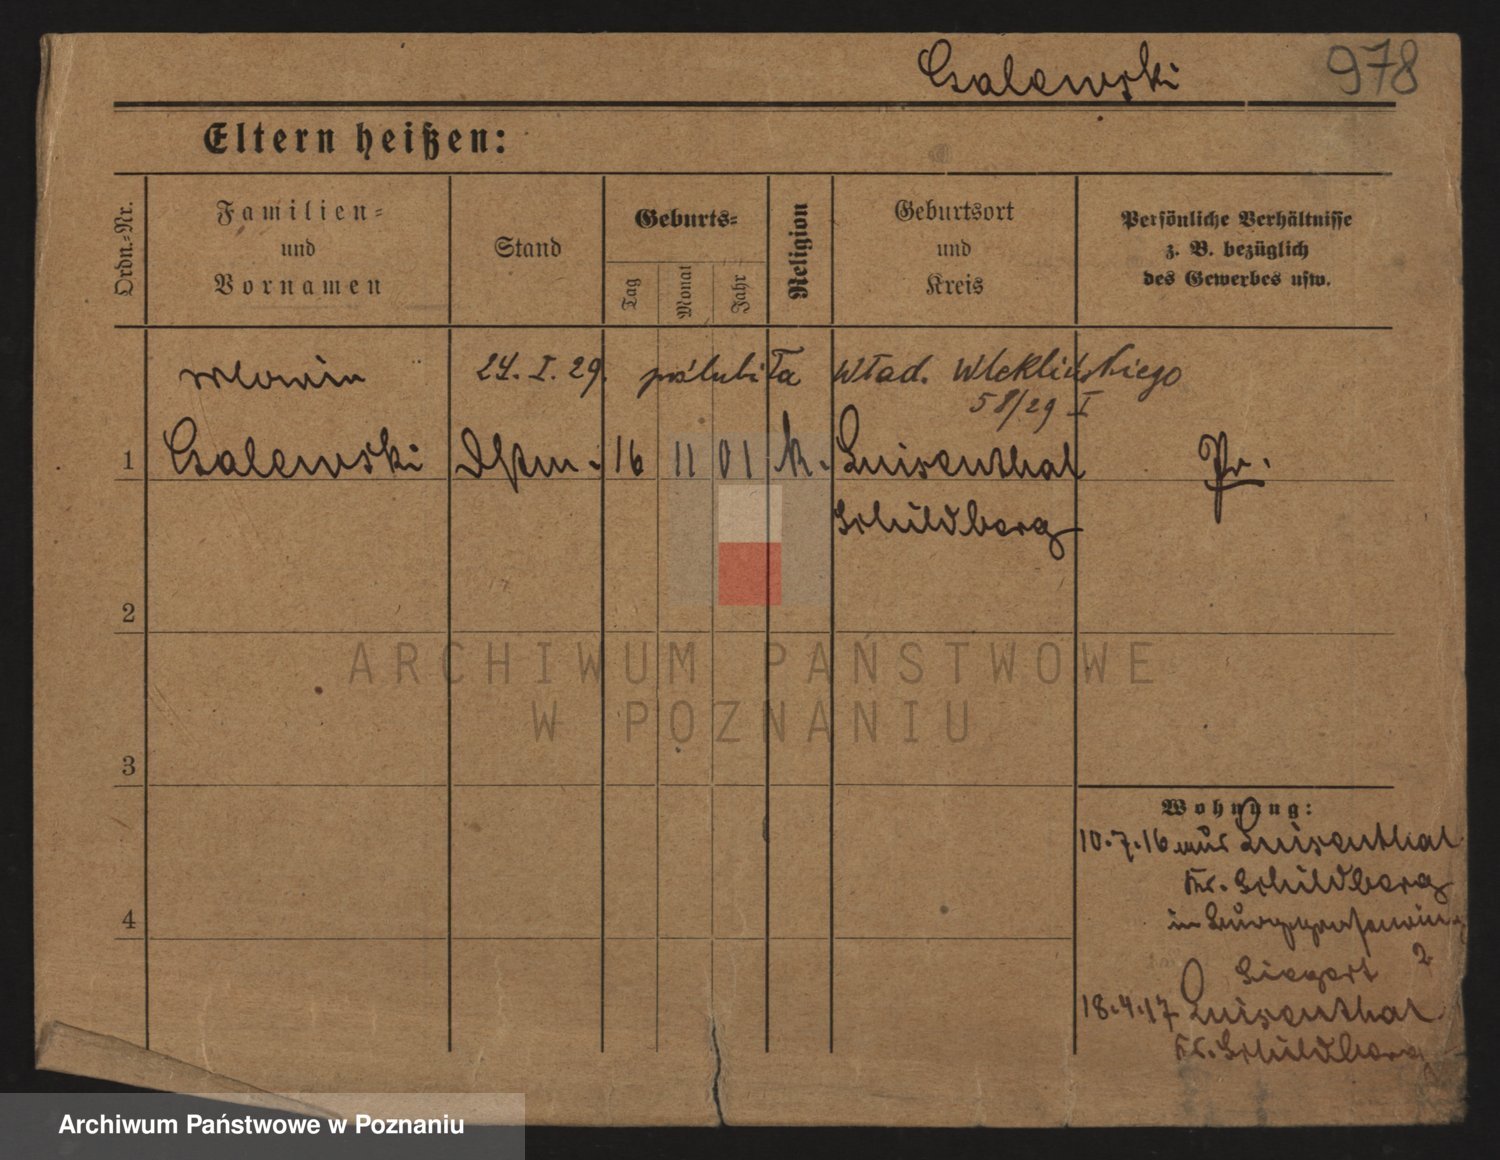 Galewski 978
Eltern heißen:
Ordn.-Nr.
Familien-
und
Vornamen
Stand
Geburts-
Tag
Monat
Jahr
Religion
Geburtsort
und
Kreis
Persönliche Verhältnisse
z. B. bezüglich
des Gewerbes usw.
24. I. 29. poślubiła Wład. Wleklińskiego
58/29 I
1 Galewski 16 11 01 k. Luisenthal Pr.
Schildberg
2
3
4
Wohnung:
10.7.16 aus Luisenthal
Kr. Schildberg
in
Siegert 2
18.4.17 Luisenthal
Kr. Schildberg
ARCHIWUM PAŃSTWOWE
W POZNANIU
Archiwum Państwowe w Poznaniu